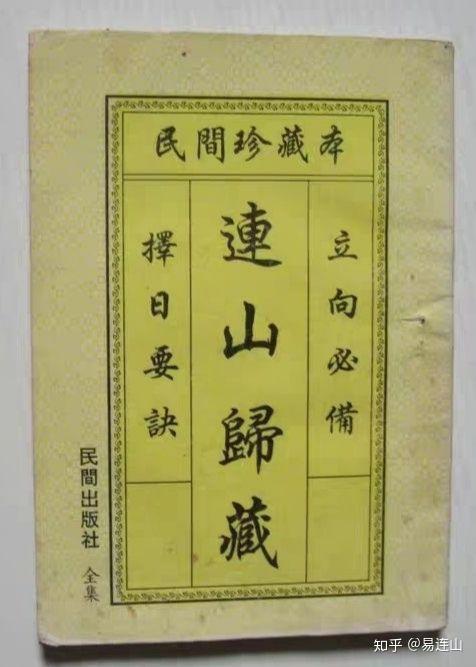 民間珍藏本
立向必備
連山歸藏
擇日要訣
民間出版社 全集
知乎 @易连山